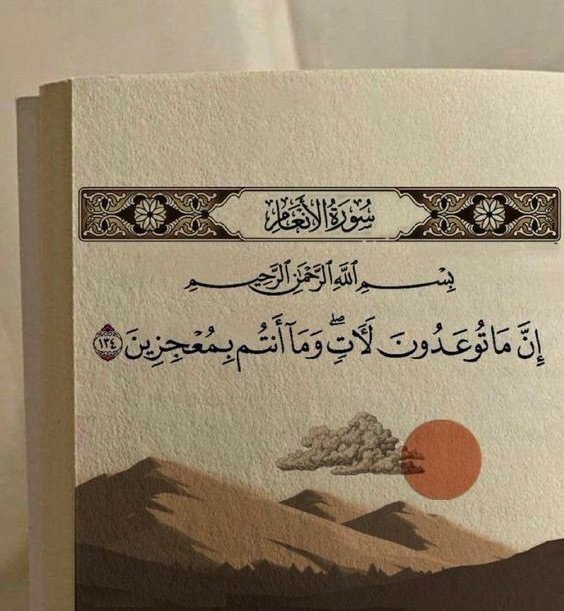 سُورَةُ الأَنْعَامِ
بِسْمِ ٱللَّهِ ٱلرَّحْمَٰنِ ٱلرَّحِيمِ
إِنَّ مَا تُوعَدُونَ لَأٓتٍ ۖ وَمَآ أَنتُم بِمُعْجِزِينَ ١٣٤